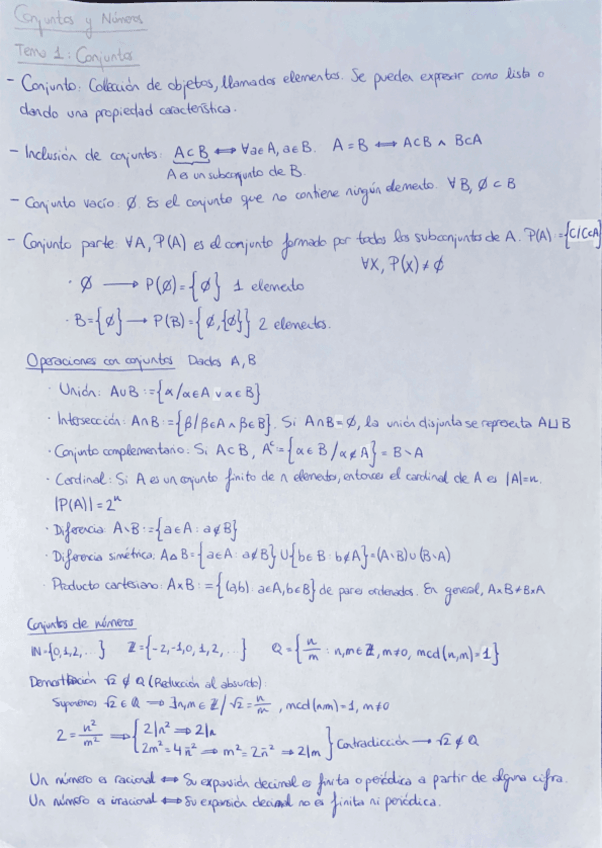 Conjuntos y Números
Tema 1: Conjuntos
- Conjunto: Colección de objetos, llamados elementos. Se pueden expresar como lista o
dando una propiedad característica.
- Inclusión de conjuntos: A⊂B ⟺ ∀a∈A, a∈B. A=B ⟺ A⊂B ∧ B⊂A
A es un subconjunto de B.
- Conjunto vacío: ∅. Es el conjunto que no contiene ningún elemento. ∀B, ∅⊂B
- Conjunto parte: ∀A, P(A) es el conjunto formado por todos los subconjuntos de A. P(A)={C/C⊂A}
∀X, P(X)≠∅
· ∅ ⟶ P(∅)={∅} 1 elemento
· B={∅} ⟶ P(B)={∅,{∅}} 2 elementos.
Operaciones con conjuntos Dados A, B
· Unión: A∪B:={α/α∈A ∨ α∈B}
· Intersección: A∩B:={β/β∈A ∧ β∈B}. Si A∩B=∅, la unión disjunta se representa A⊔B
· Conjunto complementario: Si A⊂B, Aᶜ:={α∈B/α∉A}=B∖A
· Cardinal: Si A es un conjunto finito de n elementos, entonces el cardinal de A es |A|=n.
|P(A)|=2ⁿ
· Diferencia: A∖B:={a∈A: a∉B}
· Diferencia simétrica: A△B={a∈A: a∉B}∪{b∈B: b∉A}=(A∖B)∪(B∖A)
· Producto cartesiano: A×B:={(a,b): a∈A, b∈B} de pares ordenados. En general, A×B≠B×A
Conjuntos de números
ℕ={0,1,2,...} ℤ={-2,-1,0,1,2,...} ℚ={n/m : n,m∈ℤ, m≠0, mcd(n,m)=1}
Demostración √2∉ℚ (Reducción al absurdo):
Suponemos √2∈ℚ ⟹ ∃n,m∈ℤ/√2=n/m, mcd(n,m)=1, m≠0
2=n²/m² ⟹ {2|n² ⟹ 2|n
2m²=4ñ² ⟹ m²=2ñ² ⟹ 2|m} Contradicción ⟶ √2∉ℚ
Un número es racional ⟺ Su expansión decimal es finita o periódica a partir de alguna cifra.
Un número es irracional ⟺ Su expansión decimal no es finita ni periódica.